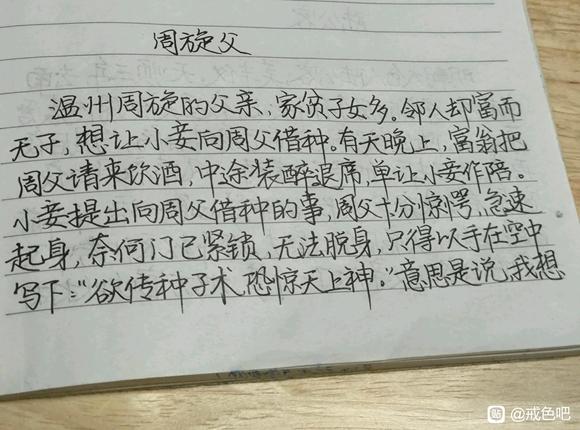 周旋父
温州周旋的父亲，家贫子女多。邻人却富而
无子，想让小妾向周父借种。有天晚上，富翁把
周父请来饮酒，中途装醉退席，单让小妾作陪。
小妾提出向周父借种的事，周父十分惊愕，急速
起身，奈何门已紧锁，无法脱身，只得以手在空中
写下："欲传种子术，恐惊天上神。"意思是说，我想
贴 @戒色吧